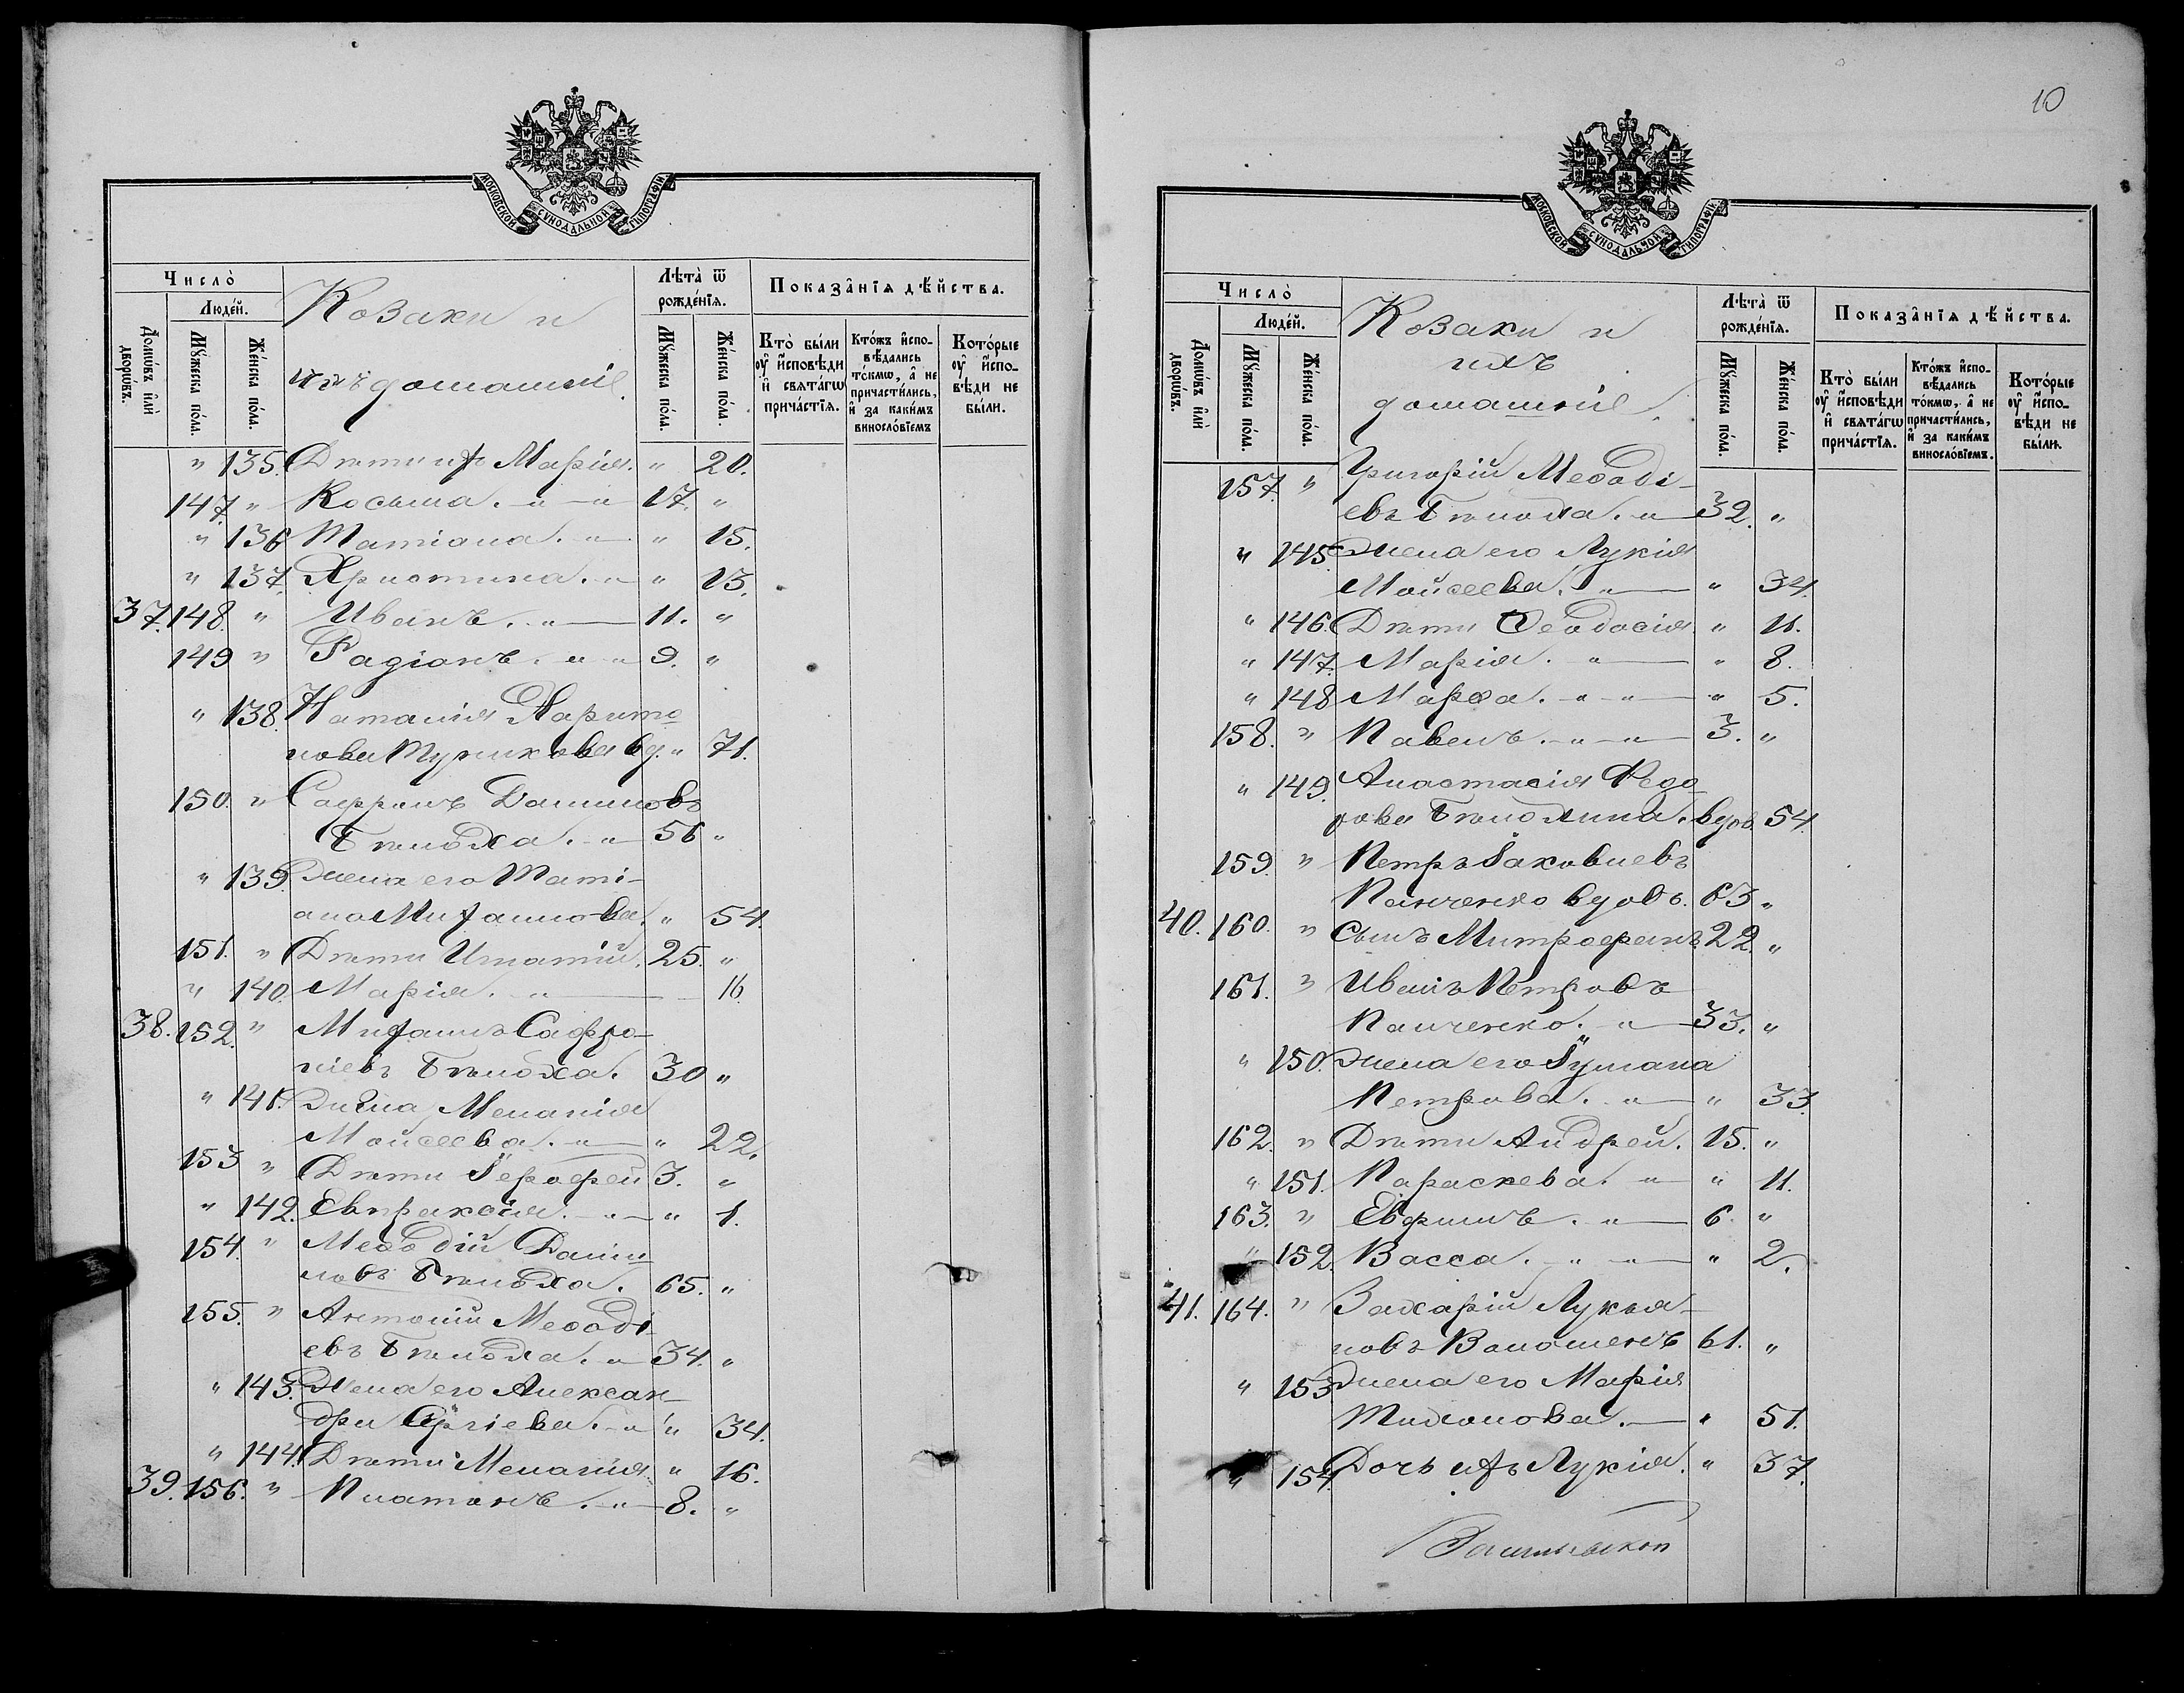 МОСКОВСКОЙ СѴНОДАЛЬНОЙ ТИПОГРАФІИ.
Число̀
Люде́й.
Домѡ́въ и҆лѝ дворѡ́въ.
Мꙋ́жеска по́ла.
Же́нска по́ла.
Козаки и
ихъ домашніе.
Лѣта̀ ѿ рожде́нїѧ.
Мꙋ́жеска по́ла.
Же́нска по́ла.
Показа̂нїѧ дѣ́йства.
Кто̀ бы́ли оу҆ и҆сповѣ́ди и҆ свѧта́гѡ прича́стїѧ.
Кто́жъ и҆спо-вѣ́дались то́кмѡ, а҆ не причасти́лись, и҆ за каки́мъ винослові́емъ
Кото́рые оу҆ и҆спо-вѣ́ди не бы́ли.
" 135. Дѣти ихъ Марія. " 20.
147. " Косьма. " " 17. "
" 136 Татіана. " " 15.
" 137. Христина. " " 13.
37. 148. " Иванъ. " 11. "
149 " Радіонъ. " " 9. "
" 138. Наталія Харито
нова вд. " 71.
150. " Софронъ Даниловъ
Бѣлоха. " 56 "
" 139. Жена его Таті-
ана Михайлова. " 54.
151. " Дѣти Игнатій. 25. "
" 140. Марія. " 16.
38. 152. " Михаилъ Софро-
ніевъ Бѣлоха. 30 "
" 141. Жена Меланія
Мойсеева. " " 22.
153 " Дѣти Іерофей 3. "
" 142. Евпраксія. " " 1.
154. " Меѳодій Дани
ловъ Бѣлоха. 65. "
155. " Антоній Меѳоді-
евъ Бѣлоха. " 34. "
" 143. Жена его Алексан-
дра Сергіева. " " 34.
" 144. Дѣти Меланія. " 16.
39. 156. " Платонъ. " 8. "
10
МОСКОВСКОЙ СѴНОДАЛЬНОЙ ТИПОГРАФІИ.
Число̀
Люде́й.
Домѡ́въ и҆лѝ дворѡ́въ.
Мꙋ́жеска по́ла.
Же́нска по́ла.
Козаки и
ихъ
домашніе.
Лѣта̀ ѿ рожде́нїѧ.
Мꙋ́жеска по́ла.
Же́нска по́ла.
Показа̂нїѧ дѣ́йства.
Кто̀ бы́ли оу҆ и҆сповѣ́ди и҆ свѧта́гѡ прича́стїѧ.
Кто́жъ и҆спо-вѣ́дались то́кмѡ, а҆ не причасти́лись, и҆ за каки́мъ винослові́емъ.
Кото́рые оу҆ и҆спо-вѣ́ди не бы́ли.
157. " Григорій Меѳоді-
евъ Бѣлоха. " 32. "
" 145. Жена его Лукія
Мойсеева. " " 34.
" 146. Дѣти Ѳеодосія. " 11.
" 147. Марія. " " 8.
" 148 Марѳа. " " " 5.
158. " Павелъ. " " 3. "
" 149. Анастасія Федо
рова Бѣлохина. вдов. 54.
159. " Петръ Іаковлевъ
Панченко вдовъ. 63 "
40. 160. " Сынъ Митрофанъ. 22. "
161. " Иванъ Петровъ
Панченко. " 33. "
" 150. Жена его Іуліана
Петрова. " " 33.
162. " Дѣти Андрей. 15. "
" 151. Параскева. " " 11.
163. " Евфимъ. " 6. "
" 152. Васса. " " " 2.
41. 164. " Захарій Лукья-
новъ Волошенъ 61. "
" 153 Жена его Марія
Тихонова. " 51.
" 154. Дочь ихъ Лукія. " 37.